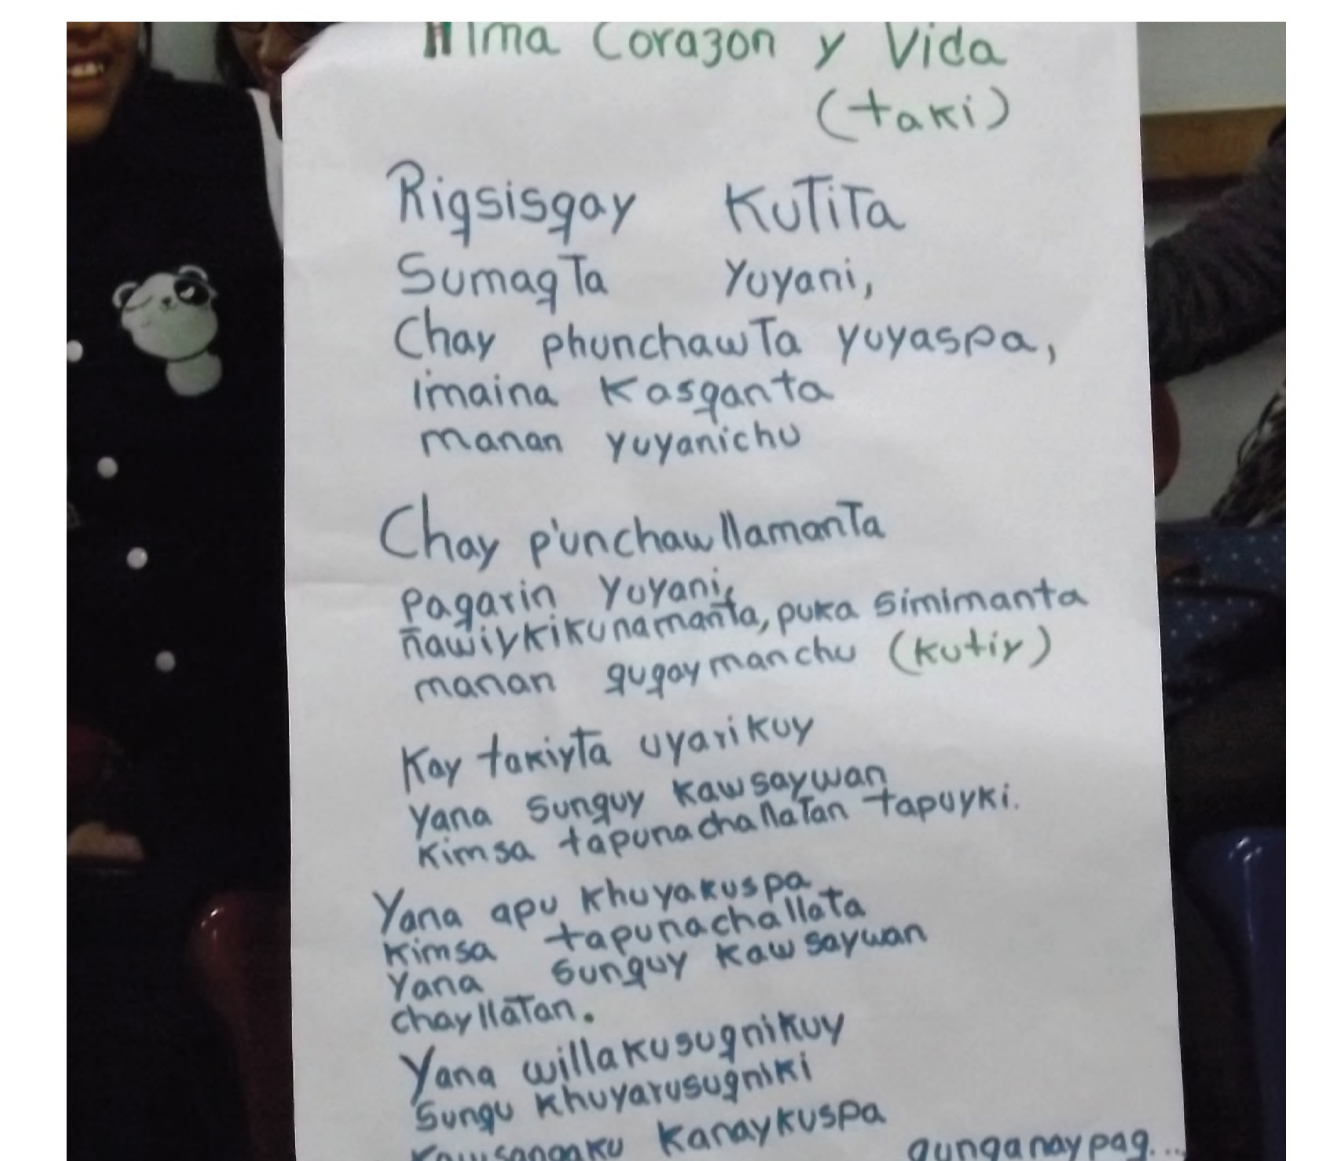 Alma Corazon y Vida
(taki)
Riqsisqay Kutita
Sumaqta yuyani,
Chay phunchawta yuyaspa,
imaina Kasqanta
manan yuyanichu
Chay p'unchawllamanta
paqarin yuyani,
ñawiykikunamanta, puka simimanta
manan quqaymanchu (kutiy)
Kay takiyta uyarikuy
yana sunquy kawsaywan
kimsa tapunachallatan tapuyki.
Yana apu khuyakuspa
kimsa tapunachallata
yana sunquy kawsaywan
chayllatan.
Yana willakusuqnikuy
sunqu khuyarusuqniki
kanaykuspa qunqanaypaq...